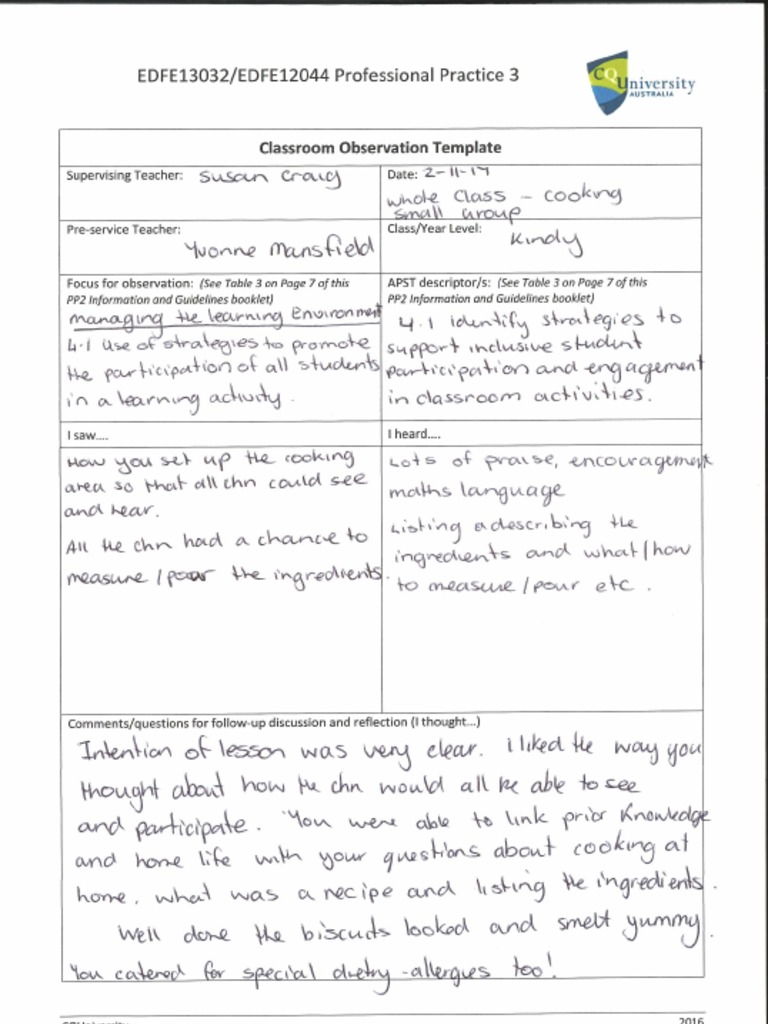 EDFE13032/EDFE12044 Professional Practice 3
CQUniversity
AUSTRALIA
Classroom Observation Template
Supervising Teacher: Susan Craig
Date: 2-11-17
whole Class - cooking
small Group
Pre-service Teacher:
Yvonne Mansfield
Class/Year Level:
Kindy
Focus for observation: (See Table 3 on Page 7 of this
PP2 Information and Guidelines booklet)
managing the learning Environment
4.1 Use of strategies to promote
the participation of all students
in a learning activity.
APST descriptor/s: (See Table 3 on Page 7 of this
PP2 Information and Guidelines booklet)
4.1 identify strategies to
support inclusive student
participation and engagement
in classroom activities.
I saw....
How you set up the cooking
area so that all chn could see
and hear.
All the chn had a chance to
measure / pour the ingredients.
I heard....
Lots of praise, encouragement
maths language
Listing & describing the
ingredients and what/how
to measure / pour etc.
Comments/questions for follow-up discussion and reflection (I thought...)
Intention of lesson was very clear. i liked the way you
thought about how the chn would all be able to see
and participate. You were able to link prior knowledge
and home life with your questions about cooking at
home, what was a recipe and listing the ingredients.
Well done the biscuits looked and smelt yummy.
You catered for special dietry - allergies too!
CQUniversity
2016